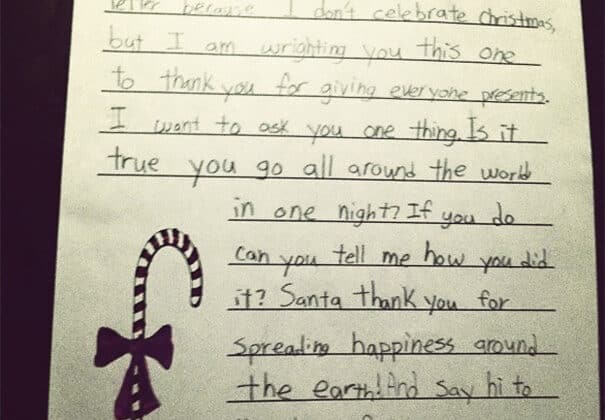 letter because I don't celebrate Christmas,
but I am wrighting you this one
to thank you for giving everyone presents.
I want to ask you one thing. Is it
true you go all around the world
in one night? If you do
can you tell me how you did
it? Santa thank you for
spreading happiness around
the earth! And say hi to